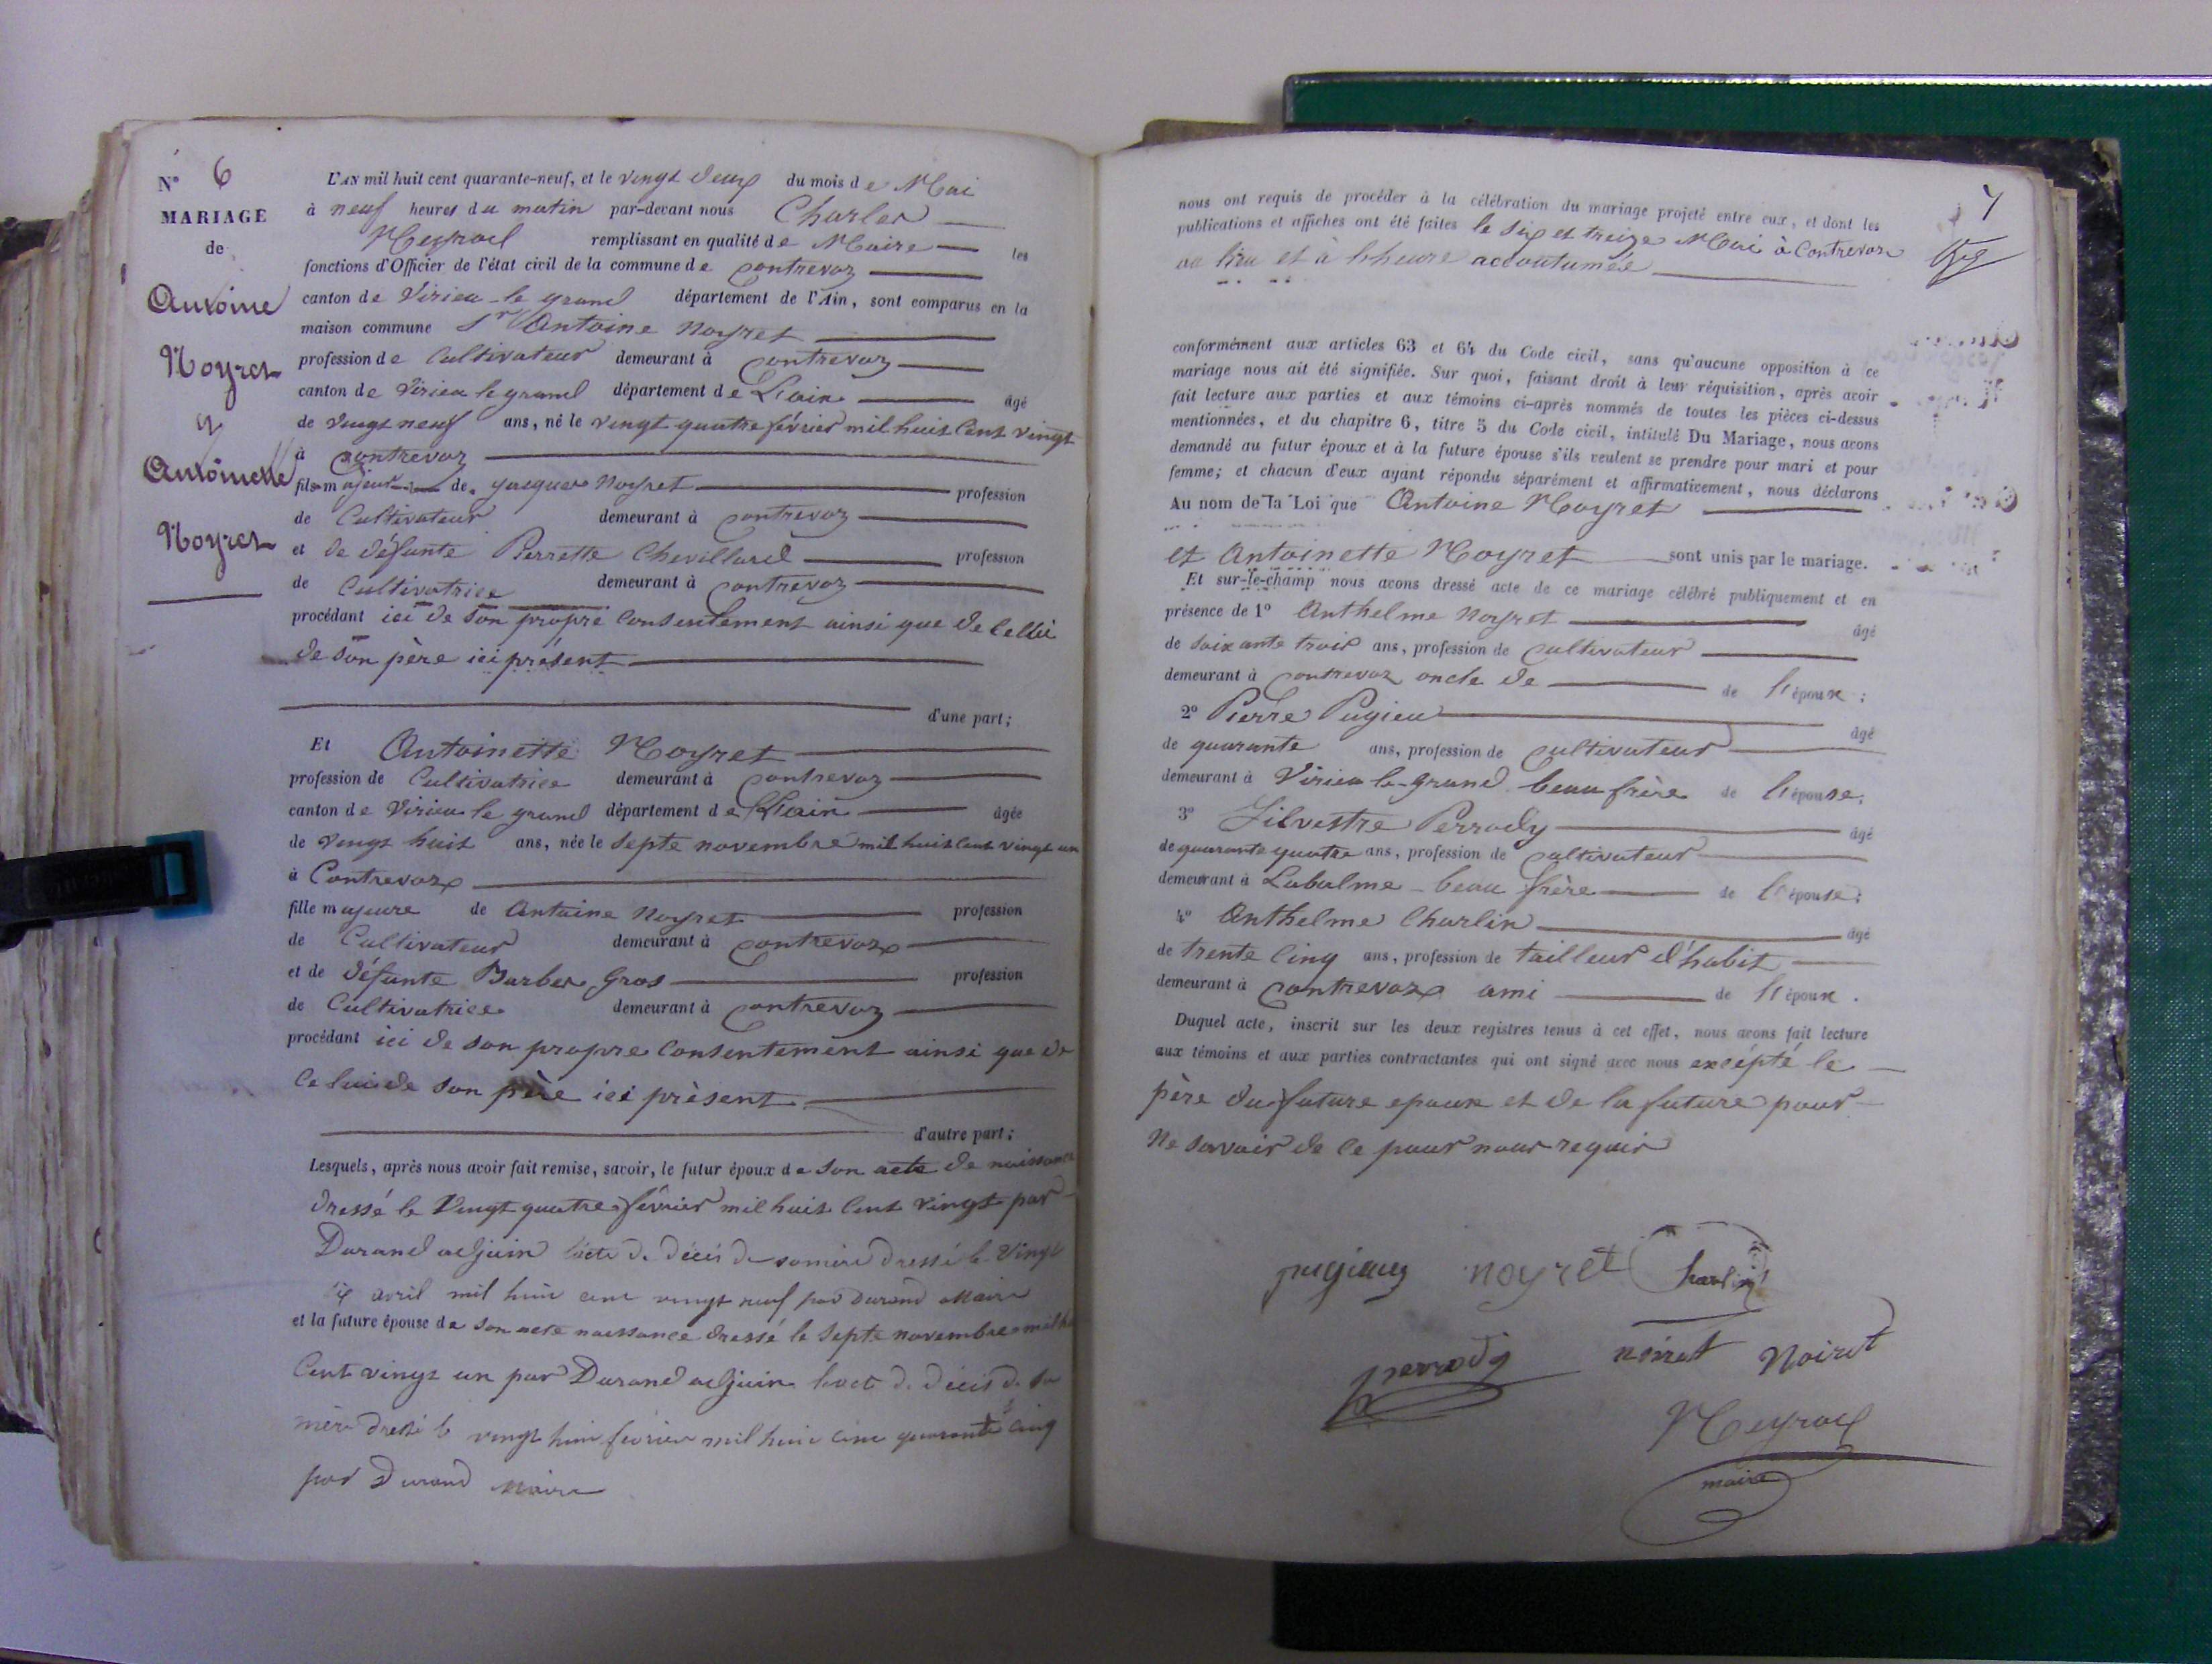 N° 6
MARIAGE
de
Antoine
Noyret
&
Antoinette
Noyret
L'AN mil huit cent quarante-neuf, et le vingt deux du mois de Mai
à neuf heures du matin par-devant nous Charles
Meyrael remplissant en qualité de Maire les
fonctions d'Officier de l'état civil de la commune de contrevoz
canton de Virieu-le grand département de l'Ain, sont comparus en la
maison commune Sr Antoine Noyret
profession de Cultivateur demeurant à contrevoz
canton de Virieu le grand département de L'ain âgé
de vingt neuf ans, né le vingt quatre février mil huit Cent vingt
à contrevoz
fils majeur de jacques Noyret profession
de Cultivateur demeurant à contrevoz
et de défunte Perrette Chevillard profession
de Cultivatrice demeurant à contrevoz
procédant ici de son propre Consentement ainsi que de Cellui
de son père ici présent
d'une part;
Et Antoinette Noyret
profession de Cultivatrice demeurant à contrevoz
canton de Virieu le grand département de L'ain âgée
de vingt huit ans, née le septe novembre mil huit Cent vingt un
à Contrevoz
fille majeure de Antoine Noyret profession
de Cultivateur demeurant à contrevoz
et de défunte Barbe Gros profession
de Cultivatrice demeurant à contrevoz
procédant ici de son propre Consentement ainsi que de
Celui de son père ici présent
d'autre part;
Lesquels, après nous avoir fait remise, savoir, le futur époux de son acte de naissance
dressé le Vingt quatre février mil huit Cent vingt par
Durand adjoin l'acte de décès de sa mère dressé le vingt
six avril mil huit cent vingt neuf par Durand Maire
et la future épouse de son acte naissance dressé le septe novembre mil huit
Cent vingt un par Durand adjoin l'acte de décès de sa
mère dressé le vingt huit février mil huit cent quarante cinq
par Durand Maire
7
nous ont requis de procéder à la célébration du mariage projeté entre eux, et dont les
publications et affiches ont été faites le six et treize Mai à Contrevoz
au lieu et à l'heure accoutumée
conformément aux articles 63 et 64 du Code civil, sans qu'aucune opposition à ce
mariage nous ait été signifiée. Sur quoi, faisant droit à leur réquisition, après avoir
fait lecture aux parties et aux témoins ci-après nommés de toutes les pièces ci-dessus
mentionnées, et du chapitre 6, titre 5 du Code civil, intitulé Du Mariage, nous avons
demandé au futur époux et à la future épouse s'ils veulent se prendre pour mari et pour
femme; et chacun d'eux ayant répondu séparément et affirmativement, nous déclarons
Au nom de la Loi que Antoine Noyret
et Antoinette Noyret sont unis par le mariage.
Et sur-le-champ nous avons dressé acte de ce mariage célébré publiquement et en
présence de 1° Anthelme Noyret âgé
de soixante trois ans, profession de cultivateur
demeurant à contrevoz oncle de de l'époux;
2° Pierre Pugieu âgé
de quarante ans, profession de cultivateur
demeurant à Virieu le-grand beau frère de l'épouse;
3° Silvestre Perrody âgé
de quarante quatre ans, profession de cultivateur
demeurant à Labalme - beau frère de l'épouse;
4° Anthelme Charlin âgé
de trente Cinq ans, profession de tailleur d'habit
demeurant à contrevoz ami de l'époux.
Duquel acte, inscrit sur les deux registres tenus à cet effet, nous avons fait lecture
aux témoins et aux parties contractantes qui ont signé avec nous excépté le
père du future epoux et de la future pour
Ne savoir de ce pour nous requis
noyret Charlin
perrody noiret Noiret
Meyrael
maire